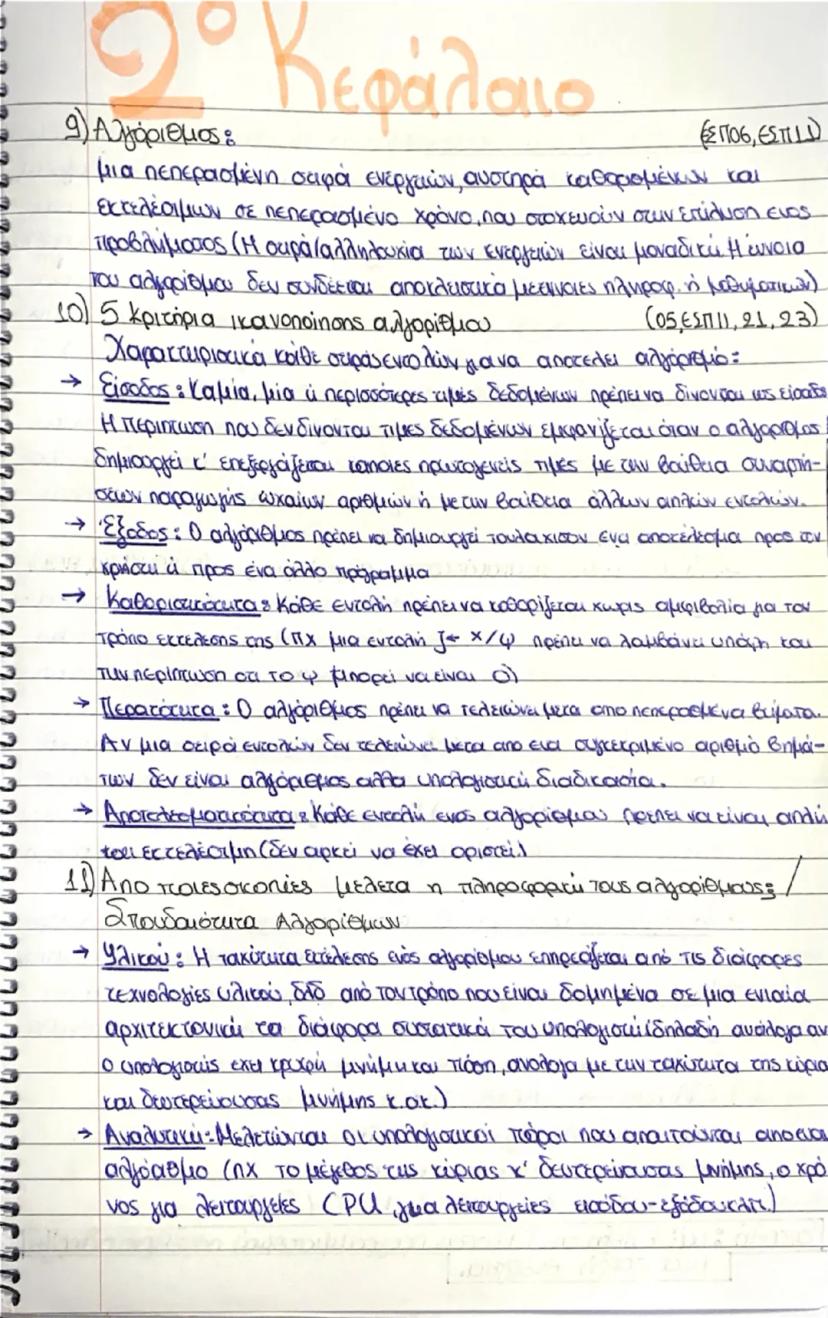 2° Κεφάλαιο
9) Αλγόριθμος: (ΕΣΠ06, ΕΣΠ11)
μια πεπερασμένη σειρά ενεργειών, αυστηρά καθορισμένων και
εκτελέσιμων σε πεπερασμένο χρόνο, που στοχεύουν στην επίλυση ενος
προβλήματος (Η σειρά/αλληλουχία των ενεργειών είναι μοναδική. Η έννοια
του αλγορίθμου δεν συνδέεται αποκλειστικά με έννοιες πληροφ. ή μαθηματικών)
10) 5 κριτήρια ικανοποίησης αλγορίθμου (05, ΕΣΠ11, 21, 23)
Χαρακτηριστικά κάθε σειράς εντολών για να αποτελεί αλγόριθμο:
→ Είσοδος: Καμία, μία ή περισσότερες τιμές δεδομένων πρέπει να δίνονται ως είσοδο
Η περίπτωση που δεν δίνονται τιμές δεδομένων εμφανίζεται όταν ο αλγόριθμος
δημιουργεί κ' επεξεργάζεται κάποιες πρωτογενείς τιμές με την βοήθεια συναρτή-
σεων παραγωγής τυχαίων αριθμών ή με την βοήθεια άλλων απλών εντολών.
→ Έξοδος: Ο αλγόριθμος πρέπει να δημιουργεί τουλάχιστον ένα αποτέλεσμα προς τον
χρήστη ή προς ένα άλλο πρόγραμμα
→ Καθοριστικότητα: Κάθε εντολή πρέπει να καθορίζεται χωρις αμφιβολία για τον
τρόπο εκτέλεσης της (πχ μια εντολή J← x/ψ πρέπει να λαμβάνει υπόψη και
την περίπτωση οτι το ψ μπορεί να είναι 0)
→ Περατότητα: Ο αλγόριθμος πρέπει να τελειώνει μετα απο πεπερασμένα βήματα.
Αν μια σειρά εντολών δεν τελειώνει μετα απο ενα συγκεκριμένο αριθμό βημά-
των δεν είναι αλγόριθμος αλλα υπολογιστική διαδικασία.
→ Αποτελεσματικότητα: Κάθε εντολή ενος αλγορίθμου πρέπει να είναι απλή
και εκτελέσιμη (δεν αρκεί να έχει οριστεί)
11) Απο ποιες σκοπιές μελετα η πληροφορική τους αλγορίθμους; /
Σπουδαιότητα Αλγορίθμων
→ Υλικού: Η ταχύτητα εκτέλεσης ενός αλγορίθμου επηρεάζεται από τις διάφορες
τεχνολογίες υλικού, δλδ από τον τρόπο που είναι δομημένα σε μια ενιαία
αρχιτεκτονική τα διάφορα συστατικά του υπολογιστή (δηλαδή ανάλογα αν
ο υπολογιστής εχει κρυφή μνήμη και πόση, ανάλογα με την ταχύτητα της κύρια
και δευτερεύουσας μνήμης κ.οκ.)
→ Αναλυτική: Μελετώνται οι υπολογιστικοί πόροι που απαιτούνται απο ενα
αλγόριθμο (πχ το μέγεθος της κύριας κ' δευτερεύουσας μνήμης, ο χρό
νος για λειτουργίες CPU, για λειτουργείες εισόδου-εξόδου κλπ.)